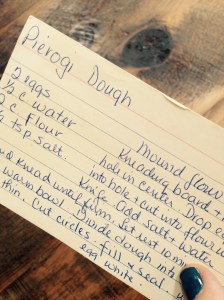 Pierogi Dough
2 eggs
½ c water
2 c. Flour
½ tsp salt.
Mound flour
Kneading board
hole in center. Drop e
into hole & cut into flour
Knife. Add salt & water
and Knead until firm. Let rest 10 min
warm bowl. Divide dough int
thin. Cut circles. fill & seal.
egg white.